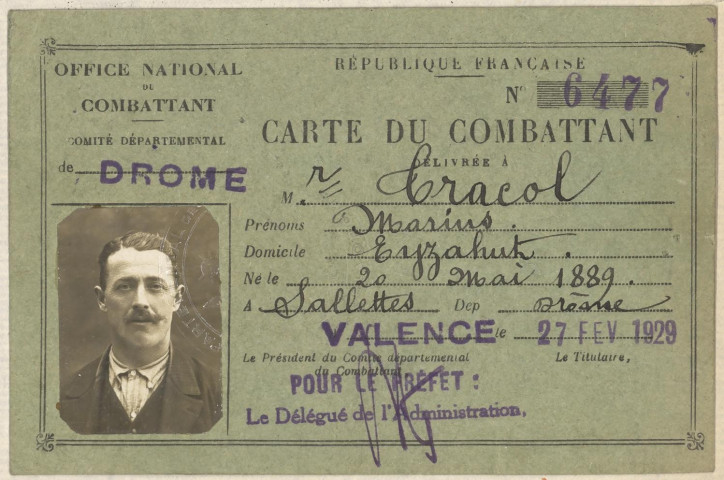 OFFICE NATIONAL
DU
COMBATTANT
COMITÉ DÉPARTEMENTAL
de DROME
RÉPUBLIQUE FRANÇAISE
N° 6477
CARTE DU COMBATTANT
DÉLIVRÉE À
M. r Tracol
Prénoms Marius.
Domicile Eyzahut.
Né le 20 Mai 1889.
A Sallettes Dep Drôme
VALENCE le 27 FEV 1929
Le Président du Comité départemental
du Combattant
Le Titulaire,
POUR LE PRÉFET :
Le Délégué de l'Administration,